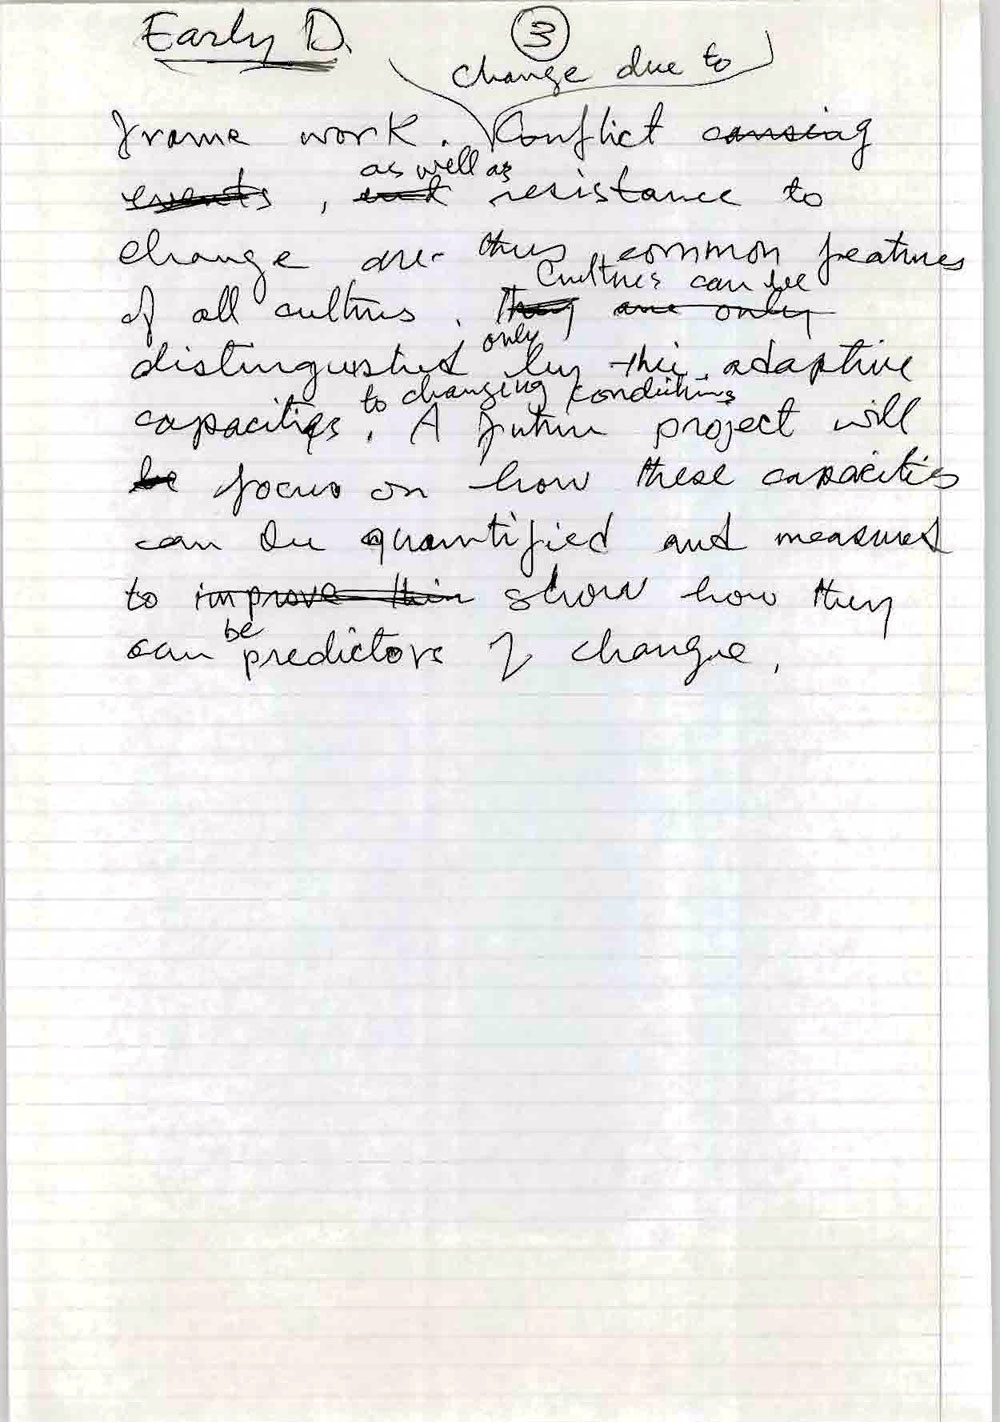 Early D. ③
change due to
frame work. Conflict causing
events, and resistance to
as well as
change are thus common features
Cultures can be
of all cultures. They are only
only
distinguished by their adaptive
to changing conditions
capacities. A future project will
be focus on how these capacities
can be quantified and measured
to improve their show how they
be
can predictors of change.